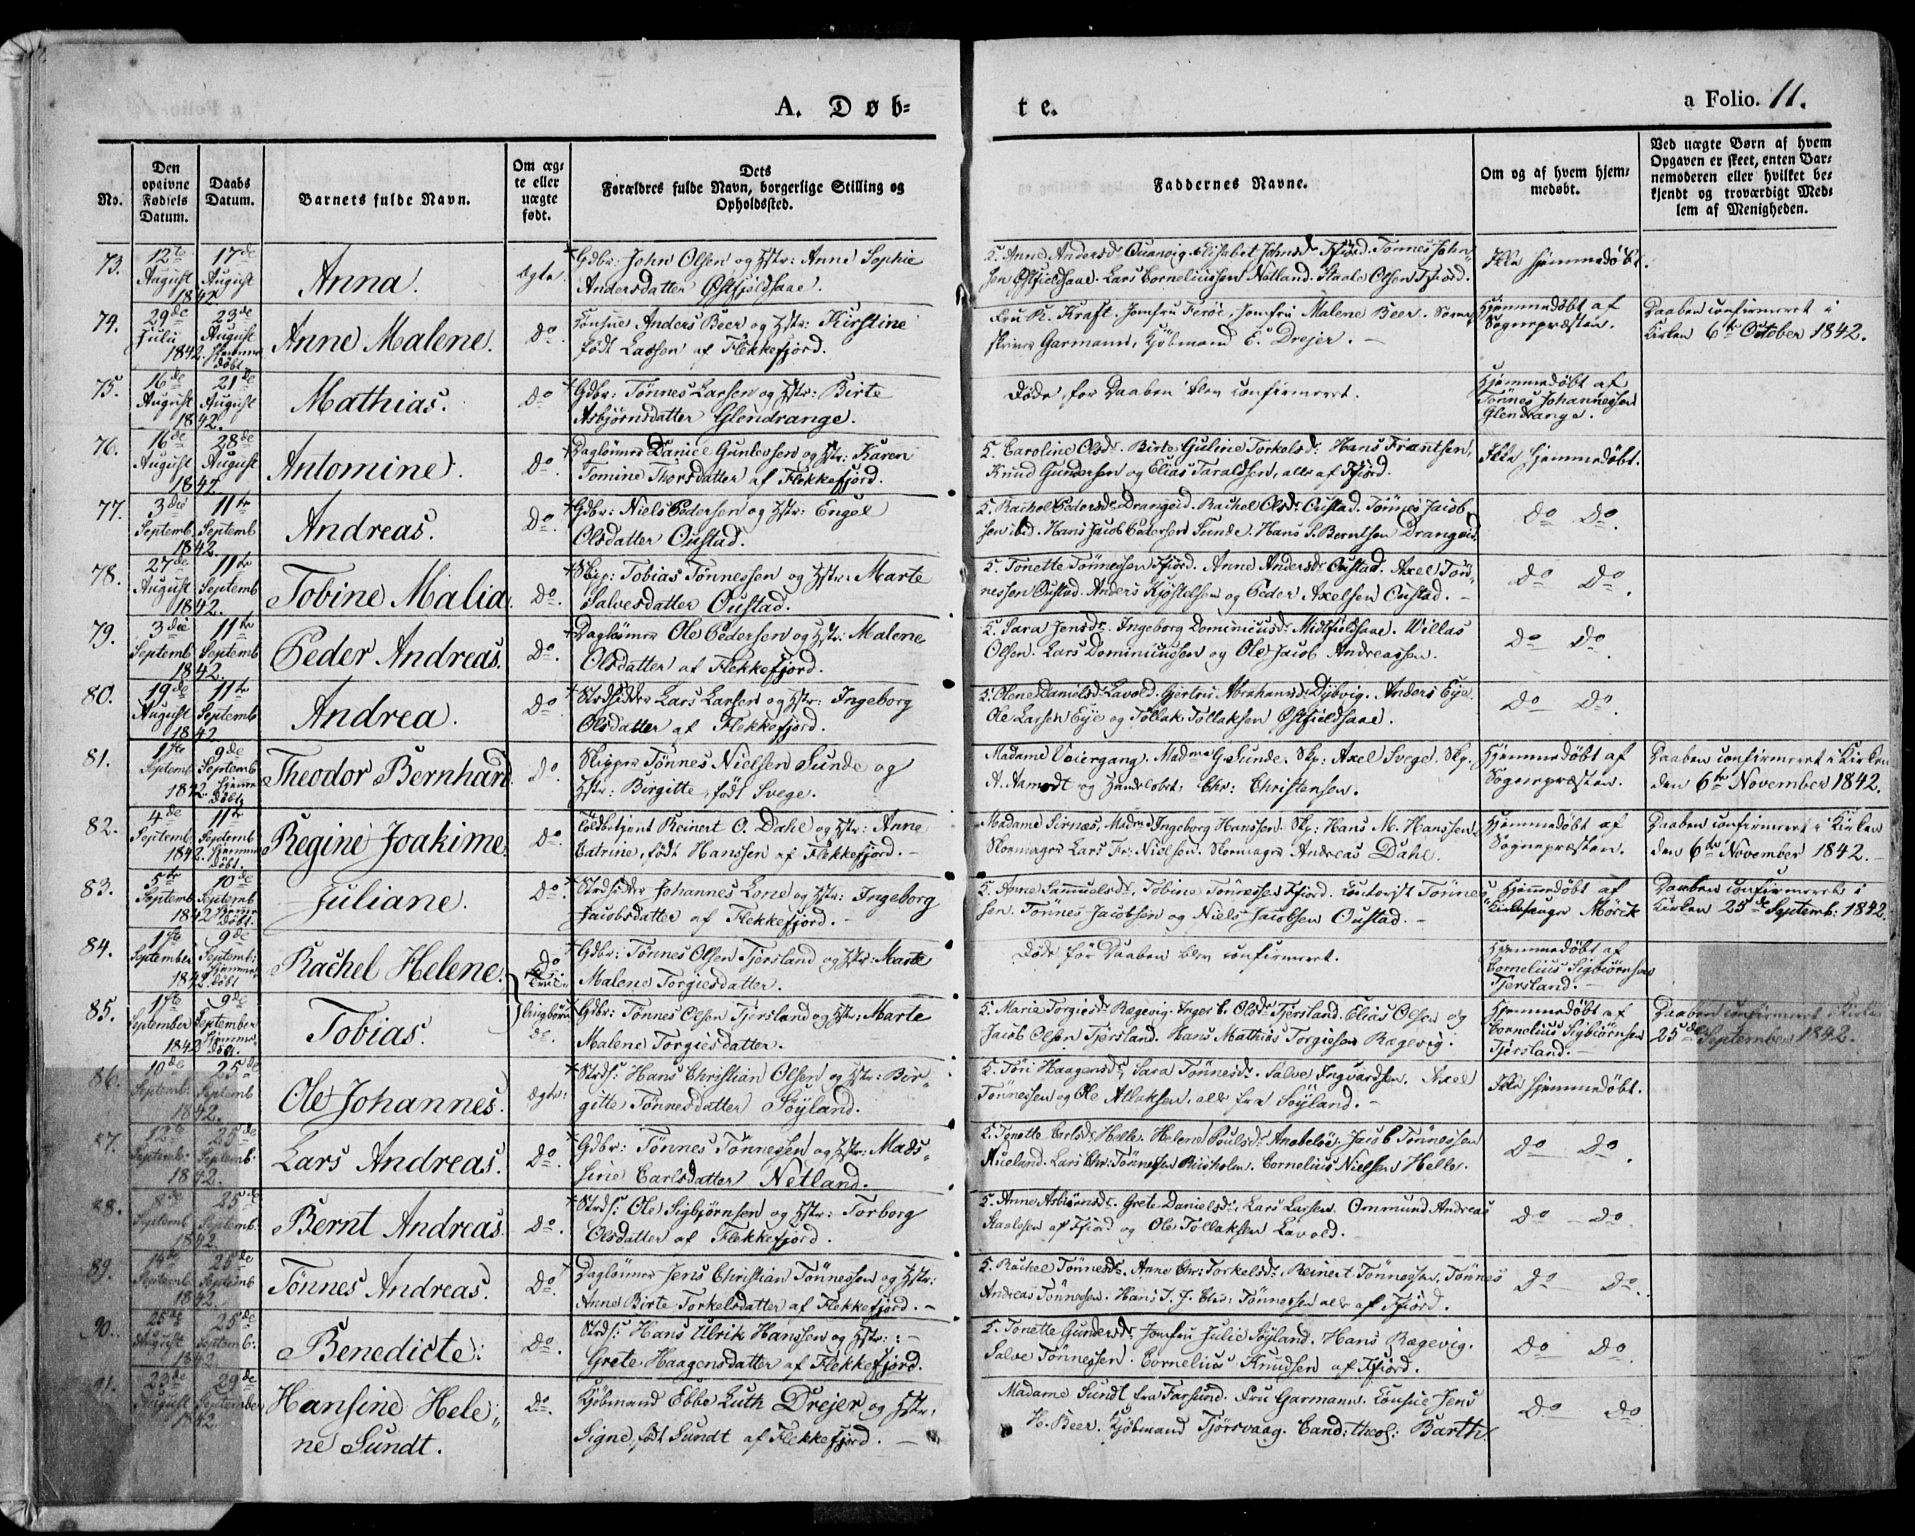 A. Døb-
te.
a Folio. 11.
No.
Den opgivne Fødsels Datum.
Daabs Datum.
Barnets fulde Navn.
Om ægte eller uægte født.
Dets Forældres fulde Navn, borgerlige Stilling og Opholdssted.
Faddernes Navne.
Om og af hvem hjemmedøbt.
Ved uægte Børn af hvem Opgaven er skeet, enten Barnemoderen eller hvilket bekjendt og troværdigt Medlem af Menigheden.
73. 12te August 1842. 17de August Anna. ægte. Gdbr: John Olsen og Hstr: Anne Sophie
Andersdatter Østfjeldsaae.
Tønnes Johnsen Østfieldsaae. Lars Corneliussen Netland. Staale Olsen Fjord.
Ikke hjemmedøbt.
74. 29de Juli 1842. 23de August Hjemmedøbt. Anne Malene. Do. Consul Anders Beer og Hstr: Kirstine
født Lassen af Flekkefjord.
Fru K. Kraft. Jomfru Feröe, Jomfru Malene Beer. Sorenskriver Garmann, Kjøbmand E. Drejer.
Hjemmedøbt af Sognepræsten.
Daaben confirmeret i Kirken 6te October 1842.
75. 16de August 1842. 21de August Mathias. Do Gdbr: Tønnes Larsen og Hstr: Birte
Asbjørnsdatter Glendrange.
Døde før Daaben blev confirmeret.
Hjemmedøbt af Tønnes Johannessen Glendrange.
76. 16de August 1842. 28de August Antomine. Do. Daglønner Daniel Gunlevsen og Hstr: Karen
Tomine Thorsdatter af Flekkefjord.
5. Caroline Olsdr. Birte Guline Torkelsdr. Hans Frantsen,
Knud Gundersen og Elias Taraldsen, alle af Fjord.
Ikke hjemmedøbt.
77. 3die Septemb 1842. 11te Septemb Andreas. Do. Gdbr: Niels Pedersen og Hstr: Engel
Olsdatter Oustad.
5. Rachel Pedersdr Drangeid. Rachel Olsdr Oustad. Tønnes Jacobsen ibid. Hans Jacob Pedersen Sunde. Hans S. Berntsen Drangeid.
Do Do.
78. 27de August 1842. 11te Septemb Tobine Malia. Do. Skip: Tobias Tønnessen og Hstr: Marte
Salvesdatter Oustad.
5. Tonette Tønnessen Fjord. Anne Andersdr Oustad. Axel Tønnessen Oustad. Anders Kjøstelsen og Peder Axelsen Oustad.
Do Do.
79. 3die Septemb 1842. 11te Septemb Peder Andreas. Do. Daglønner Ole Pedersen og Hstr: Malene
Olsdatter af Flekkefjord.
5. Sara Jensdr. Ingeborg Dominicusdr. Midtfieldsaae. Willas
Olsen. Lars Dominicussen og Ole Jacob Andreassen.
Do Do.
80. 19de August 1842. 11te Septemb Andrea. Do. Strdsidder Lars Larsen og Hstr: Ingeborg
Olsdatter af Flekkefjord.
5. Olene Danielsdr Lavold. Gjertru Abrahamsdr Dybvig. Anders Eye.
Ole Larsen Eye og Tollak Tollaksen Østfieldsaae.
Do Do.
81. 1ste Septemb 1842. 9de Septemb Hjemmedøbt. Theodor Bernhard. Do. Skipper Tønnes Nielsen Sunde og
Hstr: Birgitte, født Svege.
Madame Voiergang. Madme G. Sunde. Skp: Axel Svege. Skp.
A. Aamodt og Handelsbet: Chr: Christensen.
Hjemmedøbt af Sognepræsten.
Daaben confirmeret i Kirken den 6te November 1842.
82. 4de Septemb 1842. 11te Septemb. Hjemmedøbt. Regine Joakime. Do. Toldbetjent Reinert O. Dahl og Hstr: Anne
Catrine, født Hanssen af Flekkefjord.
Madame Sirnæs. Madme Ingeborg Hanssen. Skp: Hans M. Hanssen.
Skomager Lars Fr: Nielsen. Skomager Andreas Dahl.
Hjemmedøbt af Sognepræsten.
Daaben confirmeret i Kirken den 6te November 1842.
83. 5te Septemb 1842 10de Septemb Hjemmedøbt. Juliane. Do. Strdsidder Johannes Lone og Hstr: Ingeborg
Jacobsdatter af Flekkefjord.
5. Anne Samuelsdr. Tobine Tønnessen Fjord. Tønnessen. Tønnes Jacobsen og Niels Jacobsen Oustad.
Hjemmedøbt af Kirkesanger Mørck
Daaben confirmeret i Kirken 25de Septemb: 1842.
84. 1ste September 1842. 9de Septemb: Hjemmedøbt Rachel Helene. Do Tvillingbørn Gdbr: Tønnes Olsen Tjersland og Hstr: Marte
Malene Torgiesdatter.
Døde før Daaben blev confirmeret.
Hjemmedøbt af Cornelius Sigbiørnsen Tjersland.
85. 1ste September 1842 9de September Hjemmedøbt. Tobias. do. Gdbr: Tønnes Olsen Tjersland og Hstr: Marte
Malene Torgiesdatter.
5. Maria Torgiesdr Rægevig. Inger L. Olsdr Tjersland. Elias Olsen og
Jacob Olsen Tjersland. Hans Mathias Torgiesen Rægevig.
Hjemmedøbt af Cornelius Sigbiørnsen Tjersland.
Daaben confirmeret i Kirken 25de September 1842.
86. 10de Septemb: 1842. 25de Septemb Ole Johannes. ægte: Strds: Hans Christian Olsen og Hstr: Birgitte Tønnesdatter Søyland.
5. Töri Haagensdr. Sara Tønnesdr. Salve Ingvardsen. Axel
Tønnessen og Ole Atlaksen, alle fra Søyland.
Ikke hjemmedøbt.
87. 12te Septemb: 1842. 25de Septemb: Lars Andreas. Do. Gdbr: Tønnes Tønnessen og Hstr: Madssine Carlsdatter Netland.
5. Tonette Carlsdr Helle. Helene Poulsdr. Anabeløe. Jacob Tønnessen
Aueland. Lars Chr: Tønnesen Buskolm. Cornelius Nielsen Helle.
Do Do.
88. 8de Septemb 1842. 25de Septemb. Bernt Andreas. Do. Strds: Ole Sigbjørnsen og Hstr: Torborg
Olsdatter af Flekkefjord.
5. Anne Asbiørnsdr. Grete Danielsdr. Lars Larsen. Ommund Andreas
Staalesen af Fjord og Ole Tollaksen Lavold.
Do Do
89. 14de Septemb 1842. 25de Septemb Tønnes Andreas. Do. Daglønner Jens Christian Tønnessen og Hstr:
Anne Birte Torkelsdatter af Flekkefjord.
5. Rachel Tønnesdr. Anne Chr: Torkelsdr. Reinert Tønnessen, Tønnes
Andreas Tønnesen. Hans T. J. Chr: Tønnessen alle af Fjord.
Do Do.
90. 25de August 1842 25de Septemb: Benedicte. Do. Strds: Hans Ulrik Hanssen og Hstr:
Grete Haagensdatter af Flekkefjord.
5. Tonette Gundersdr. Jomfru Julie Søyland. Hans Rægevig.
Salve Tønnessen. Cornelius Knudsen af Fjord.
Do Do.
91. 23de August 1842 29de September Hansine Helene Sundt. Do. Kjøbmand Ebbe Luth Drejer og Hstr,
Signe, født Sundt af Flekkefjord.
Madame Sundt fra Farsund. Fru Garmann. Consul Jens
H. Beer. Kjøbmand Tjörsvaag. Cand: theol: Barth.
Do Do